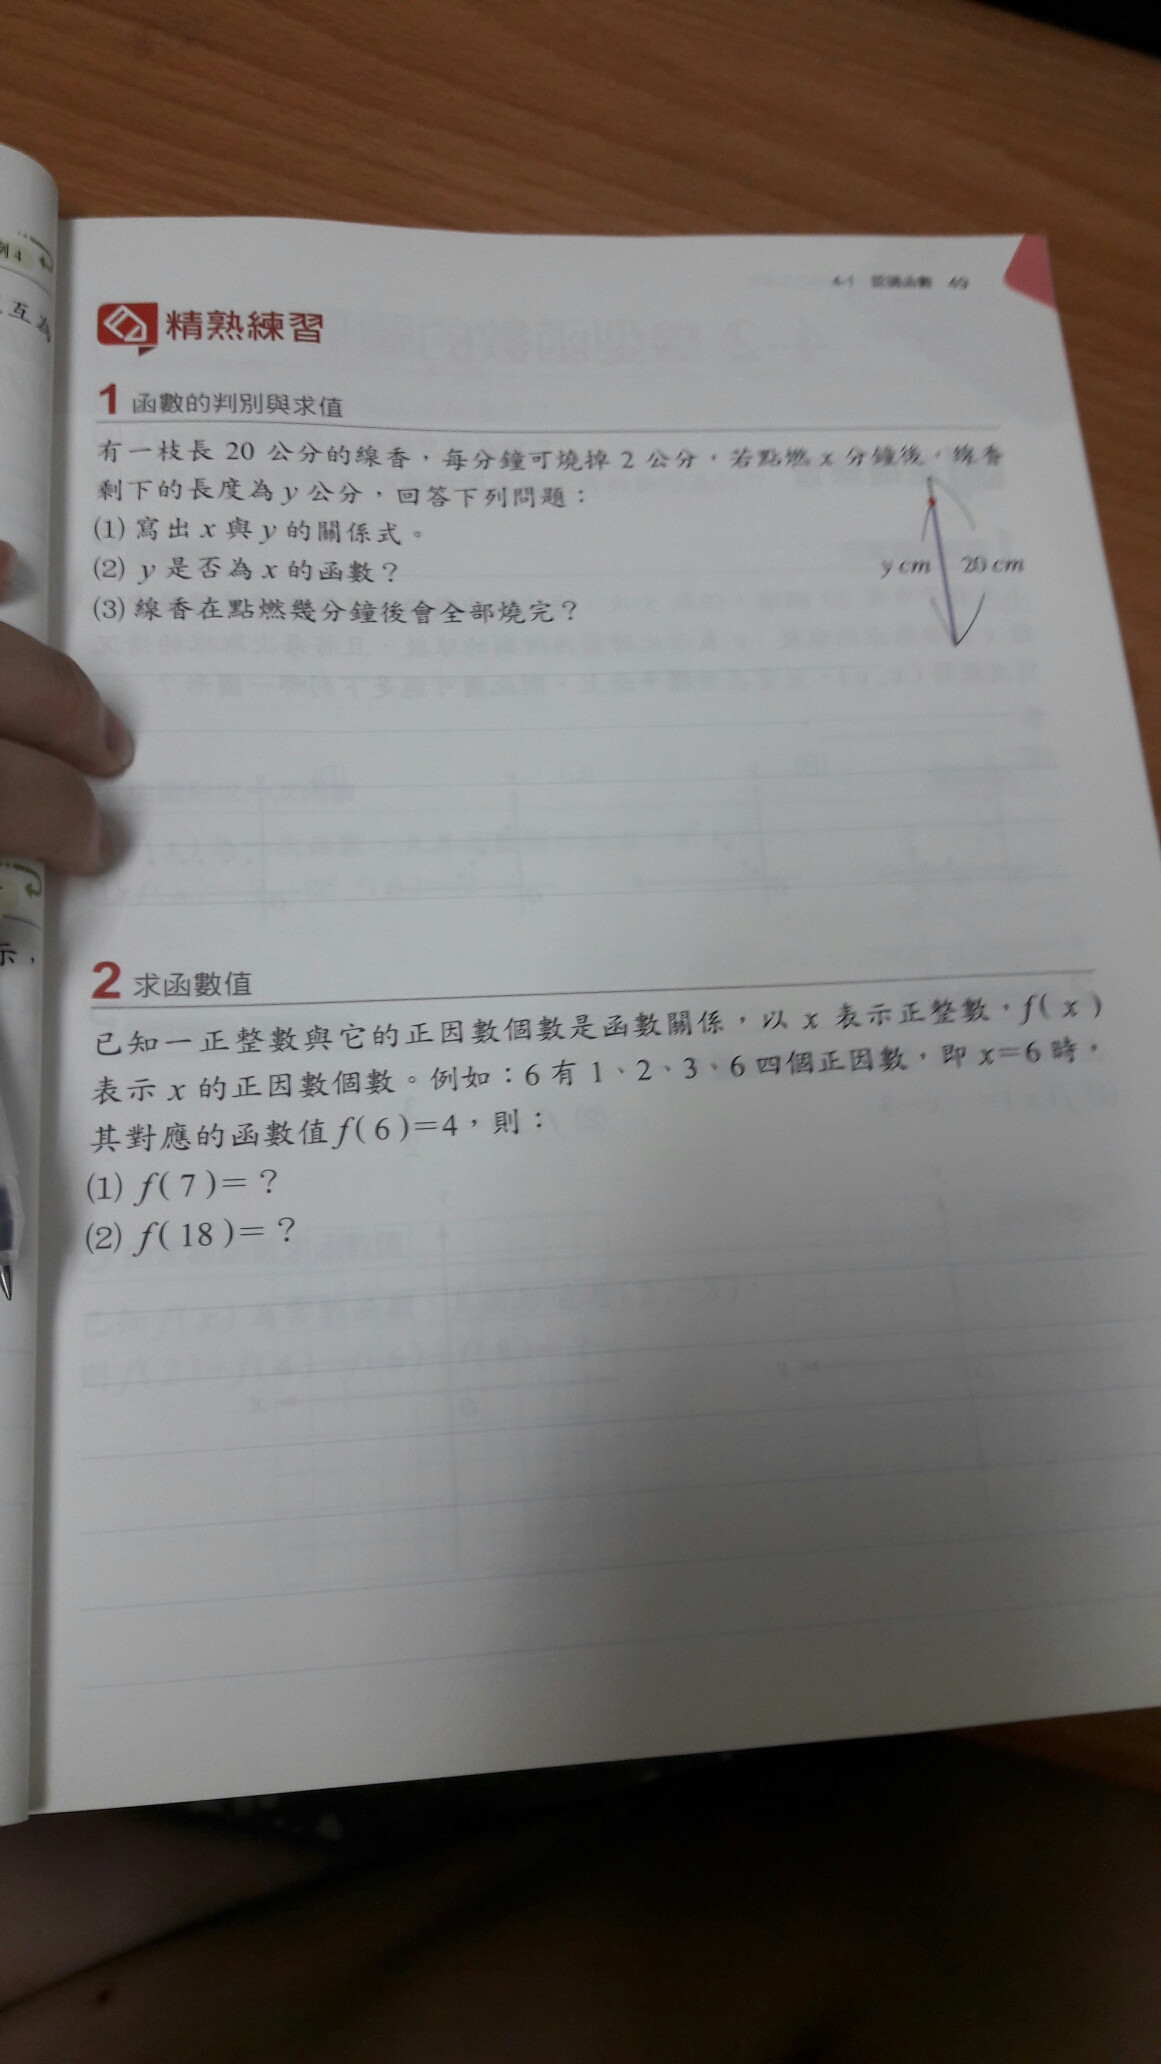 例4
互為
4-1 認識函數 49
精熟練習
1 函數的判別與求值
有一枝長 20 公分的線香，每分鐘可燒掉 2 公分，若點燃 x 分鐘後，線香
剩下的長度為 y 公分，回答下列問題：
(1) 寫出 x 與 y 的關係式。
(2) y 是否為 x 的函數？
(3) 線香在點燃幾分鐘後會全部燒完？
y cm
20 cm
示，
2 求函數值
已知一正整數與它的正因數個數是函數關係，以 x 表示正整數，f( x )
表示 x 的正因數個數。例如：6 有 1、2、3、6 四個正因數，即 x=6 時，
其對應的函數值 f( 6 )=4，則：
(1) f( 7 )=？
(2) f( 18 )=？